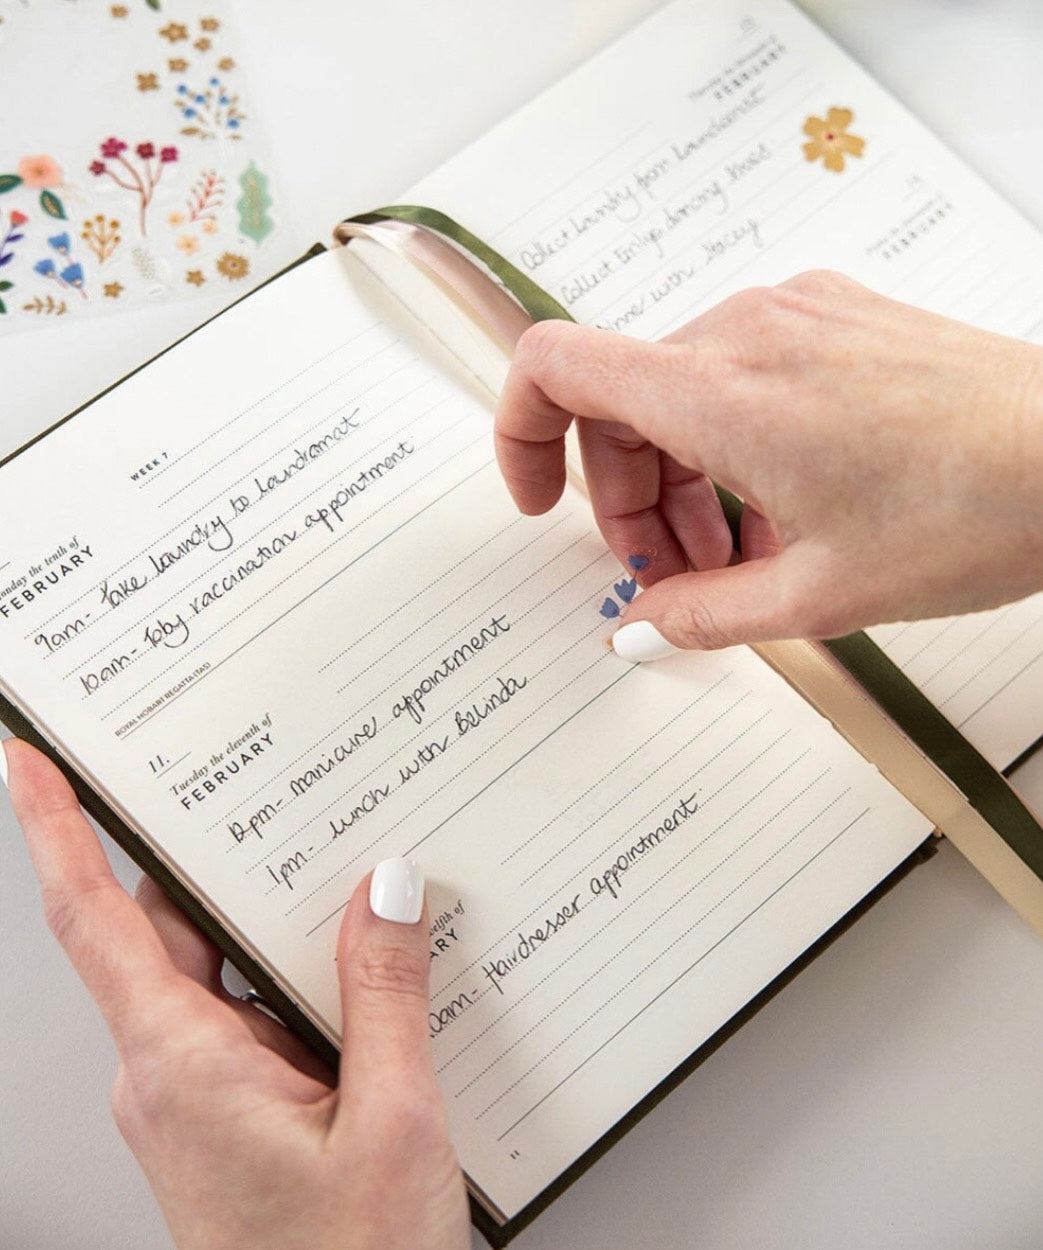 WEEK 7
Monday the tenth of
FEBRUARY
9am- Take laundry to laundramat
10am- Toby vaccination appointment
ROYAL HOBART REGATTA (TAS)
11.
Tuesday the eleventh of
FEBRUARY
12pm- manicure appointment
1pm- lunch with Belinda
10am- Hairdresser appointment
11
Thursday the thirteenth of
FEBRUARY
Collect laundry from laundramat
Collect Emilys dancing shoes
with Stacey
FEBRUARY